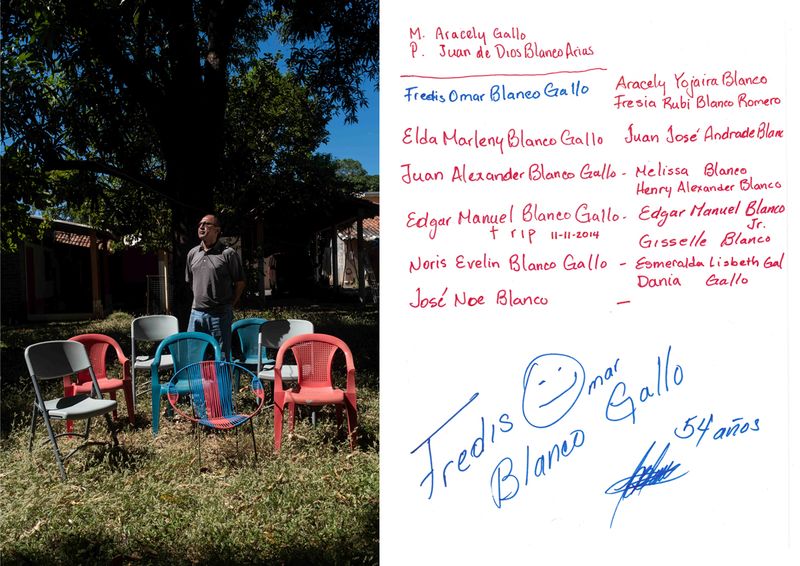 M. Aracely Gallo
P. Juan de Dios Blanco Arias
Fredis Omar Blanco Gallo
Aracely Yojaira Blanco
Fresia Rubi Blanco Romero
Elda Marleny Blanco Gallo Juan José Andrade Blanc
Juan Alexander Blanco Gallo - Melissa Blanco
Henry Alexander Blanco
Edgar Manuel Blanco Gallo - Edgar Manuel Blanco
Jr.
† rip 11-11-2014
Gisselle Blanco
Noris Evelin Blanco Gallo - Esmeralda Lisbeth Gal
Dania Gallo
José Noe Blanco -
Fredis Omar
Blanco Gallo
54 años